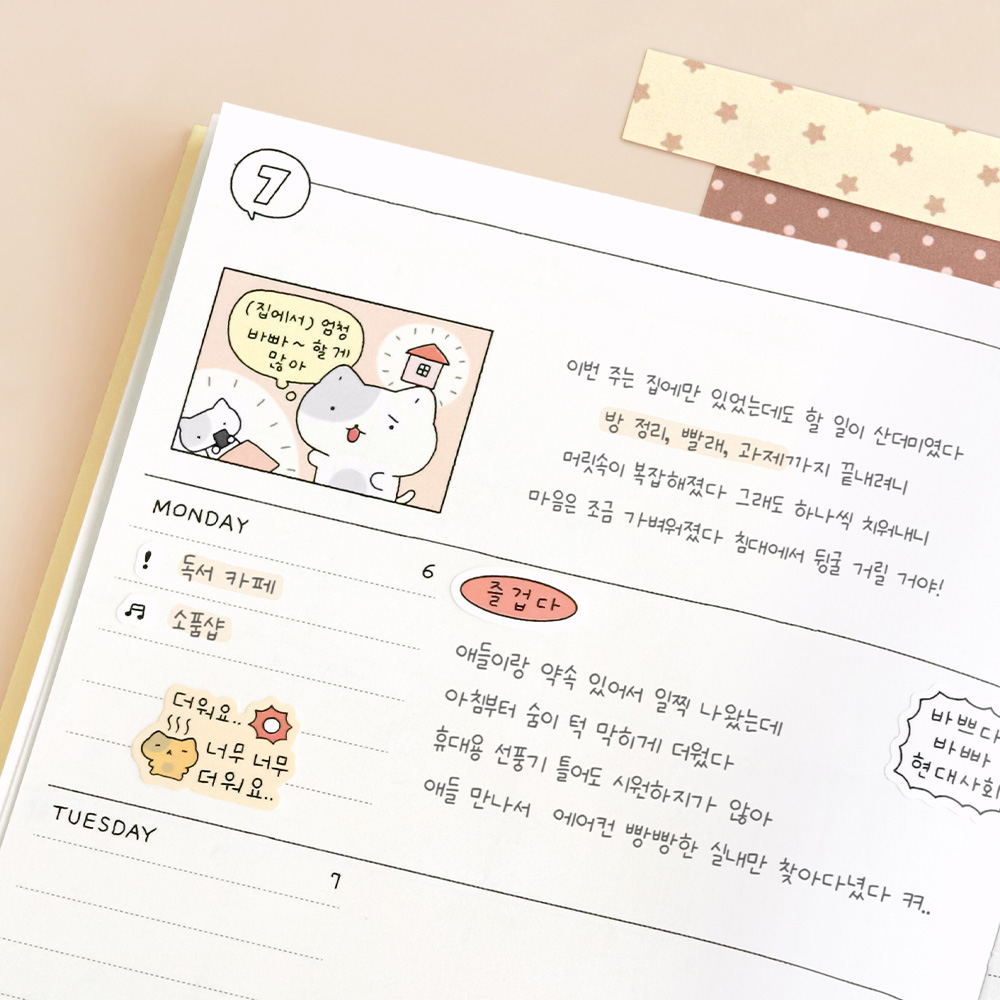 7
(집에서) 엄청
바빠~ 할 게
많아
이번 주는 집에만 있었는데도 할 일이 산더미였다
방 정리, 빨래, 과제까지 끝내려니
머릿속이 복잡해졌다 그래도 하나씩 치워내니
마음은 조금 가벼워졌다 침대에서 뒹굴 거릴 거야!
MONDAY
6
!
독서 카페
소품샵
더워요..
너무 너무
더워요..
즐겁다
애들이랑 약속 있어서 일찍 나왔는데
아침부터 숨이 턱 막히게 더웠다
휴대용 선풍기 틀어도 시원하지가 않아
애들 만나서 에어컨 빵빵한 실내만 찾아다녔다 ㅋㅋ..
바쁘다
바빠
현대사회
TUESDAY
7